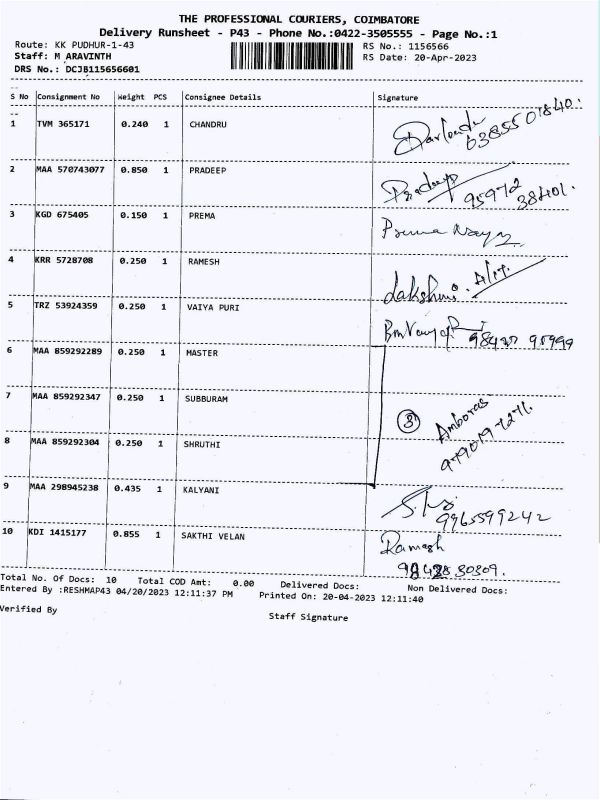 THE PROFESSIONAL COURIERS, COIMBATORE
Delivery Runsheet - P43 - Phone No.:0422-3505555 - Page No.:1
Route: KK PUDHUR-1-43 RS No.: 1156566
Staff: M ARAVINTH RS Date: 20-Apr-2023
DRS No.: DCJB115656601
--
S No Consignment No Weight PCS Consignee Details Signature
--
1 TVM 365171 0.240 1 CHANDRU
2 MAA 570743077 0.850 1 PRADEEP Pradeep
95972
38401.
3 KGD 675405 0.150 1 PREMA Prema
4 KRR 5728708 0.250 1 RAMESH
5 TRZ 53924359 0.250 1 VAIYA PURI
6 MAA 859292289 0.250 1 MASTER
7 MAA 859292347 0.250 1 SUBBURAM
3
8 MAA 859292304 0.250 1 SHRUTHI
9 MAA 298945238 0.435 1 KALYANI
9965599242
10 KDI 1415177 0.855 1 SAKTHI VELAN Ramesh
Total No. Of Docs: 10 Total COD Amt: 0.00 Delivered Docs: Non Delivered Docs:
Entered By :RESHMAP43 04/20/2023 12:11:37 PM Printed On: 20-04-2023 12:11:40
Verified By Staff Signature